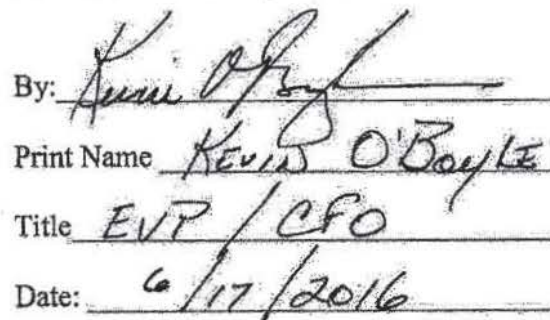 By: Kevin O'Boyle
Print Name KEVIN O'BOYLE
Title EVP / CFO
Date: 6/17/2016